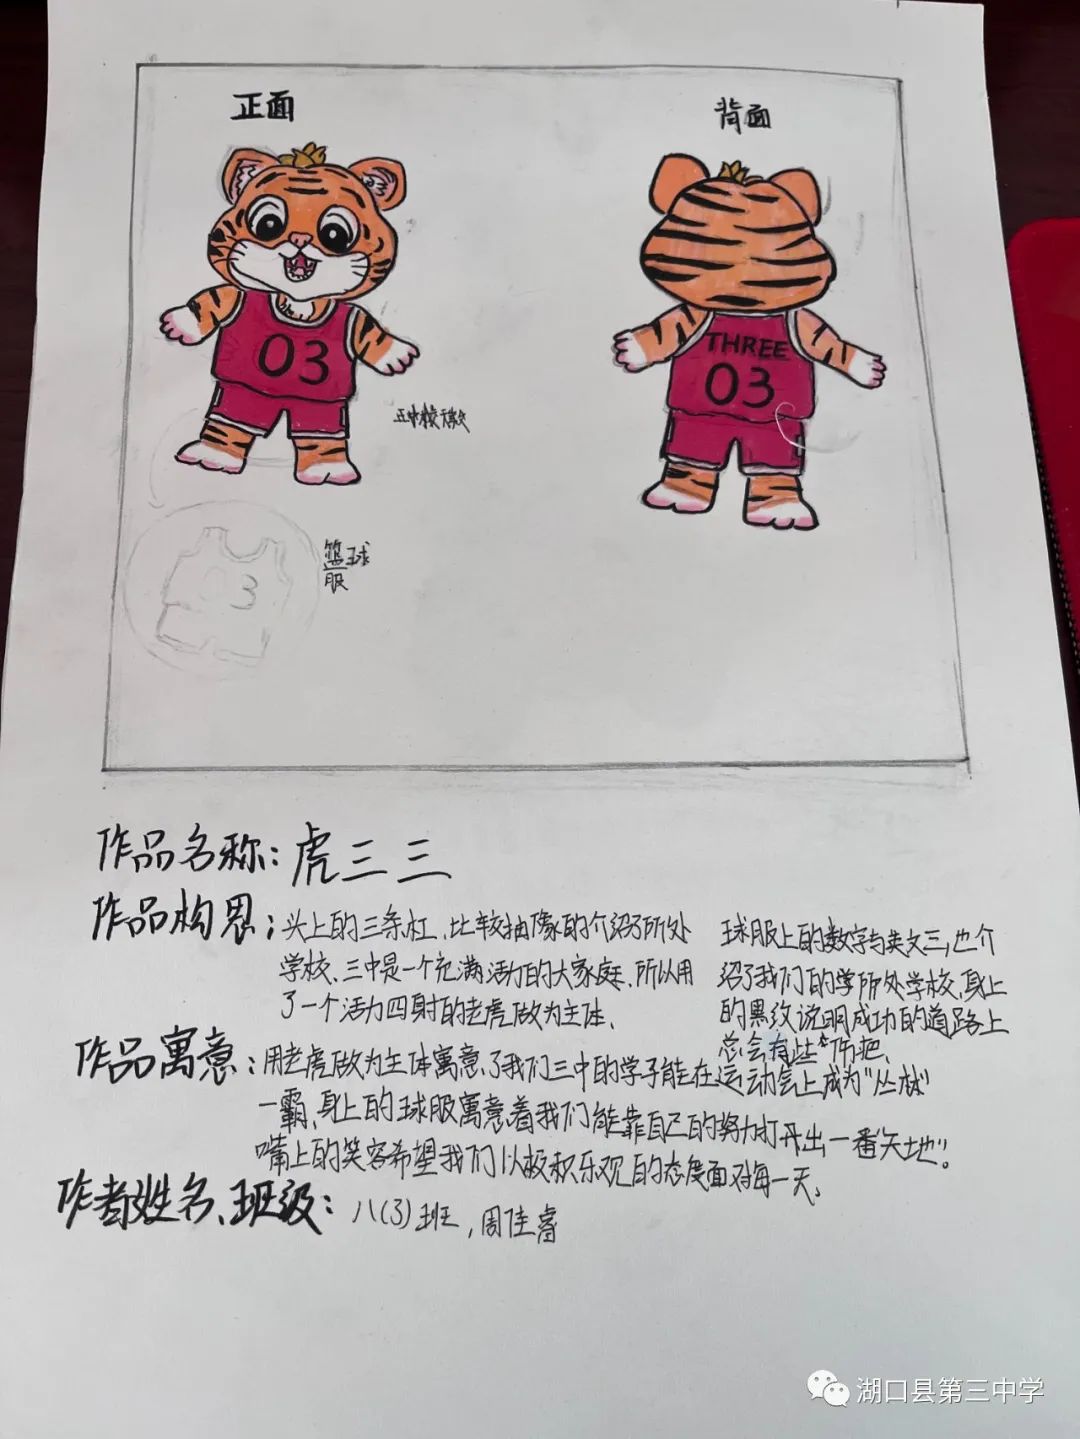 正面
背面
03
THREE
03
篮球
服
3
作品名称：虎三三
作品构思：头上的三条杠、比较抽像的介绍了所处
学校、三中是一个充满活力的大家庭、所以用
了一个活力四射的老虎做为主体、
球服上的数字与英文三,也介
绍了我们的学所处学校、身上
的黑纹说明成功的道路上
总会有些"伤疤、
作品寓意：用老虎做为主体寓意了我们三中的学子能在运动会上成为"丛林"
一霸、身上的球服寓意着我们能靠自己的努力打开出一番"天地"。
嘴上的笑容希望我们以极积乐观的态度面对每一天。
作者姓名、班级：八(3)班，周佳睿
湖口县第三中学